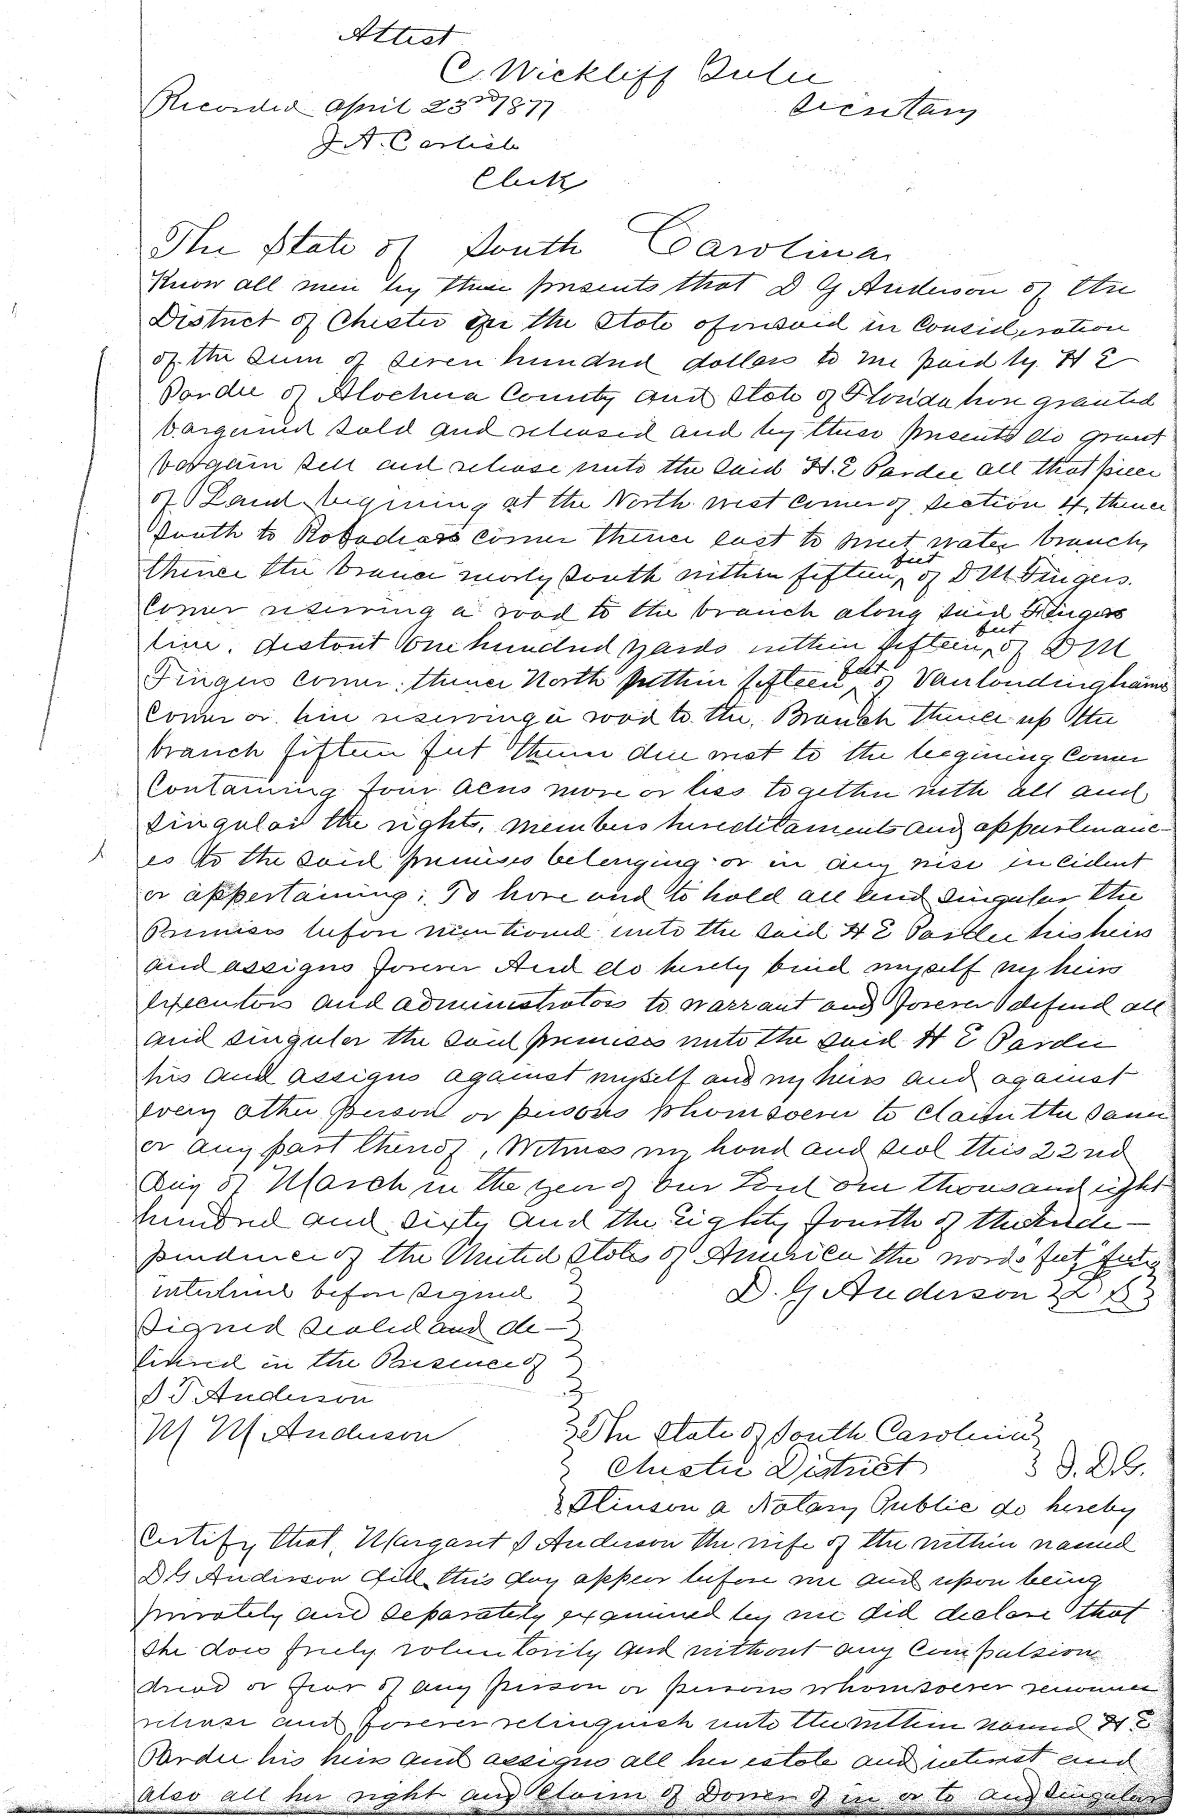 Attest
C. Wickliff
Secretary
Recorded April 23rd 1877
J. A. Carlisle
Clerk
The State of South Carolina
Know all men by these presents that D G Anderson of the
District of Chester in the State aforesaid in Consideration
of the Sum of Seven hundred dollars to me paid by H E
Pardee of Alachua County and State of Florida have granted
bargained sold and released and by these presents do grant
bargain sell and release unto the said H. E Pardee all that piece
of Land begining at the North west corner of Section 4, thence
South to corner thence east to sweet water branch,
thence the branch nearly South within fifteen feet of D M Fingers.
Corner reserving a road to the branch along said Fingers
line, distant one hundred yards within fifteen feet of D M
Fingers corner; thence North within fifteen feet of Vanlondinghams
Corner or line reserving a road to the, Branch thence up the
branch fifteen feet thence due west to the begining Corner
Containing four acres more or less together with all and
singular the rights, members hereditaments and appurtenanc-
es to the said premises belonging or in any wise incident
or appertaining; To have and to hold all and singular the
Premises before mentioned unto the said H E Pardee his heirs
and assigns forever And do hereby bind myself my heirs
executors and administrators to warrant and forever defend all
and singular the said premises unto the said H E Pardee
his and assigns against myself and my heirs and against
every other person or persons whomsoever to claim the same
or any part thereof, Witness my hand and seal this 22nd
day of March in the year of our Lord one thousand eight
hundred and sixty and the Eighty fourth of the Inde-
pendence of the United States of America the words "feet" feet
interlined before signed
D. G Anderson {L S}
Signed sealed and de-
livered in the Presence of
J T Anderson
M M Anderson
The State of South Carolina
Chester District } J. D. G.
Stinson a Notary Public do hereby
Certify that, Margaret J Anderson the wife of the within named
D G Anderson did this day appear before me and upon being
privately and separately examined by me did declare that
she does freely voluntarily and without any Compulsion
dread or fear of any person or persons whomsoever renounce
release and forever relinquish unto the within named H E
Pardee his heirs and assigns all her estate and interest and
also all her right and Claim of Dower of in or to and singular